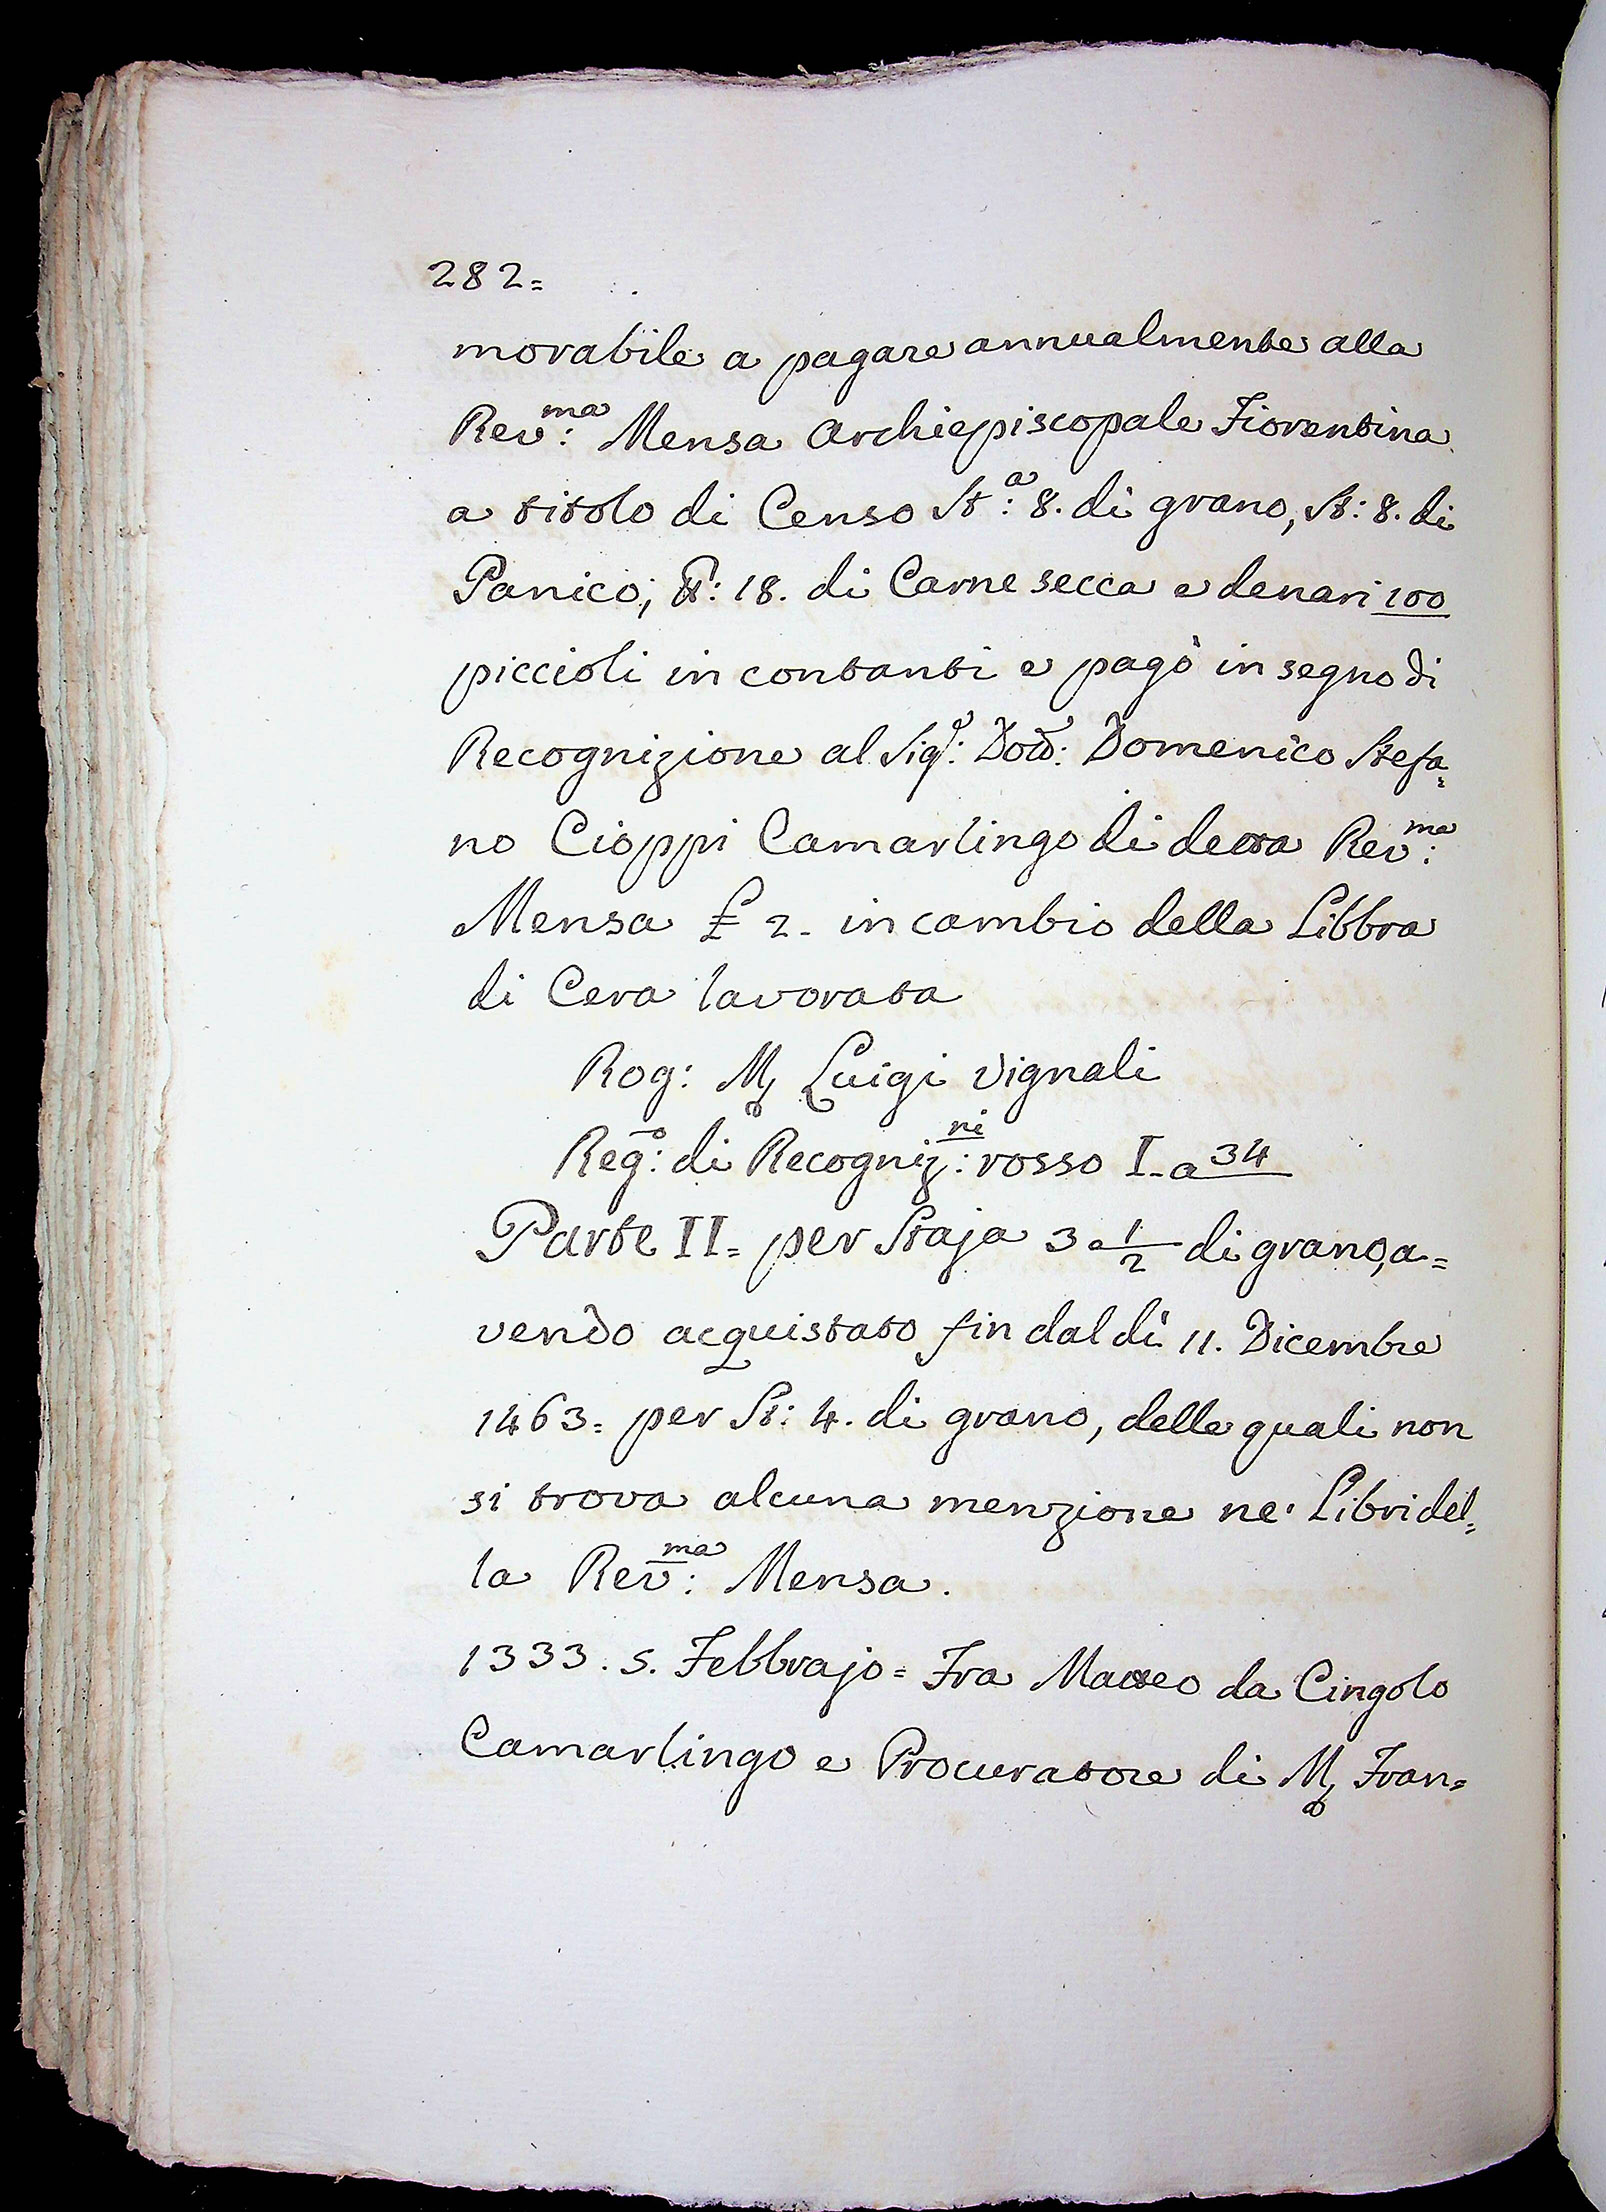 282=
morabile a pagare annualmente alla
Rev:ma Mensa Archiepiscopale Fiorentina
a titolo di Censo St:a 8. di grano, St: 8. di
Panico, ℔: 18. di Carne secca e denari 100
piccioli in contanti e pagò in segno di
Recognizione al Sig:e Dott:e Domenico Stefa=
no Cioppi Camarlingo di detta Rev:ma
Mensa £ 2- in cambio della Libbra
di Cera lavorata
Rog: M, Luigi Vignali
Reg:o di Recogniz:ni rosso I- a 34
Parte II= per Staja 3 e 1/2 di grano, a=
vendo acquistato fin dal dì 11. Dicembre
1463= per St: 4. di grano, delle quali non
si trova alcuna menzione ne' Libri del=
la Rev:ma Mensa.
1333. 5. Febbrajo= Fra Matteo da Cingolo
Camarlingo e Procuratore di M, Fran=